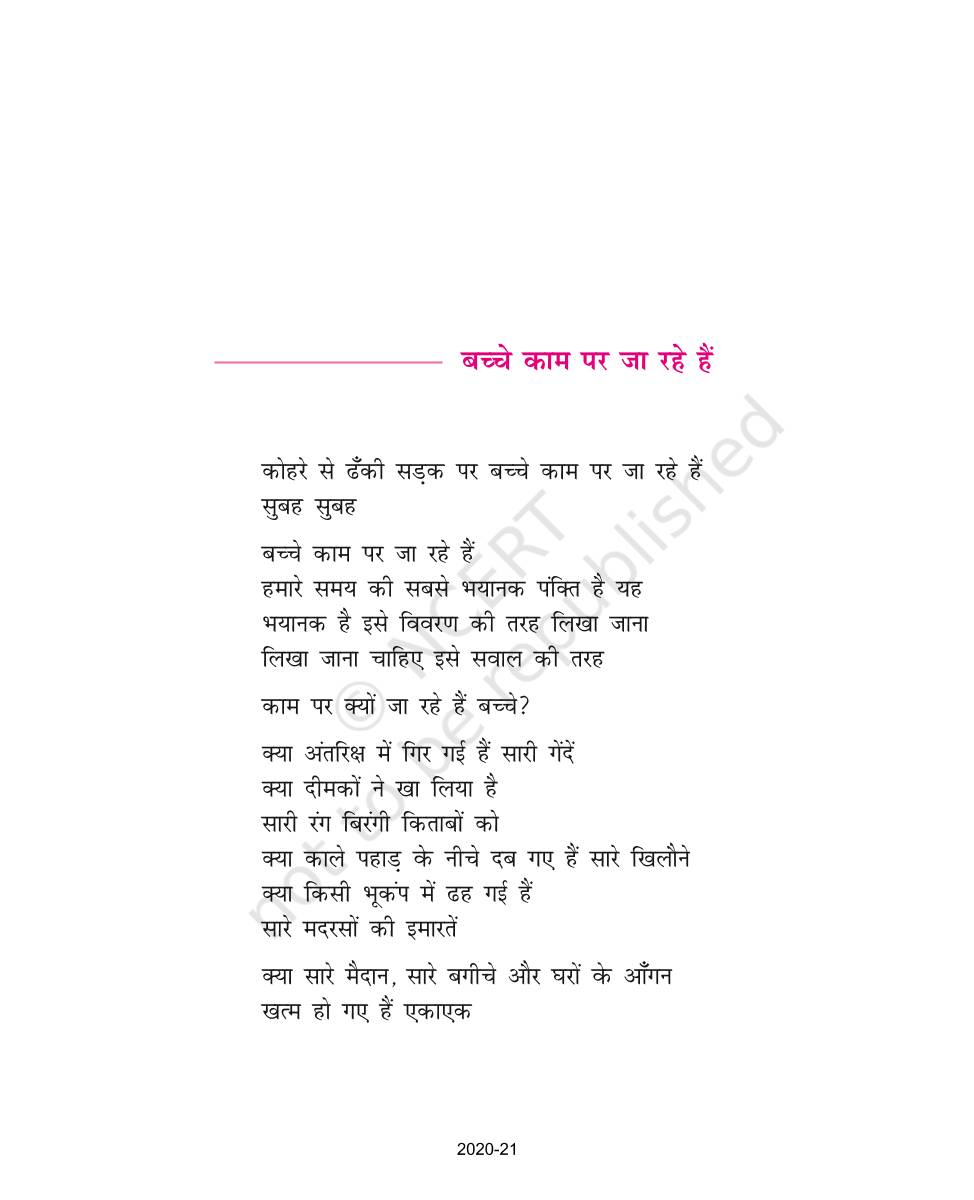 बच्चे काम पर जा रहे हैं
कोहरे से ढँकी सड़क पर बच्चे काम पर जा रहे हैं
सुबह सुबह
बच्चे काम पर जा रहे हैं
हमारे समय की सबसे भयानक पंक्ति है यह
भयानक है इसे विवरण की तरह लिखा जाना
लिखा जाना चाहिए इसे सवाल की तरह
काम पर क्यों जा रहे हैं बच्चे?
क्या अंतरिक्ष में गिर गई हैं सारी गेंदें
क्या दीमकों ने खा लिया है
सारी रंग बिरंगी किताबों को
क्या काले पहाड़ के नीचे दब गए हैं सारे खिलौने
क्या किसी भूकंप में ढह गई हैं
सारे मदरसों की इमारतें
क्या सारे मैदान, सारे बगीचे और घरों के आँगन
खत्म हो गए हैं एकाएक
© NCERT
not to be republished
2020-21